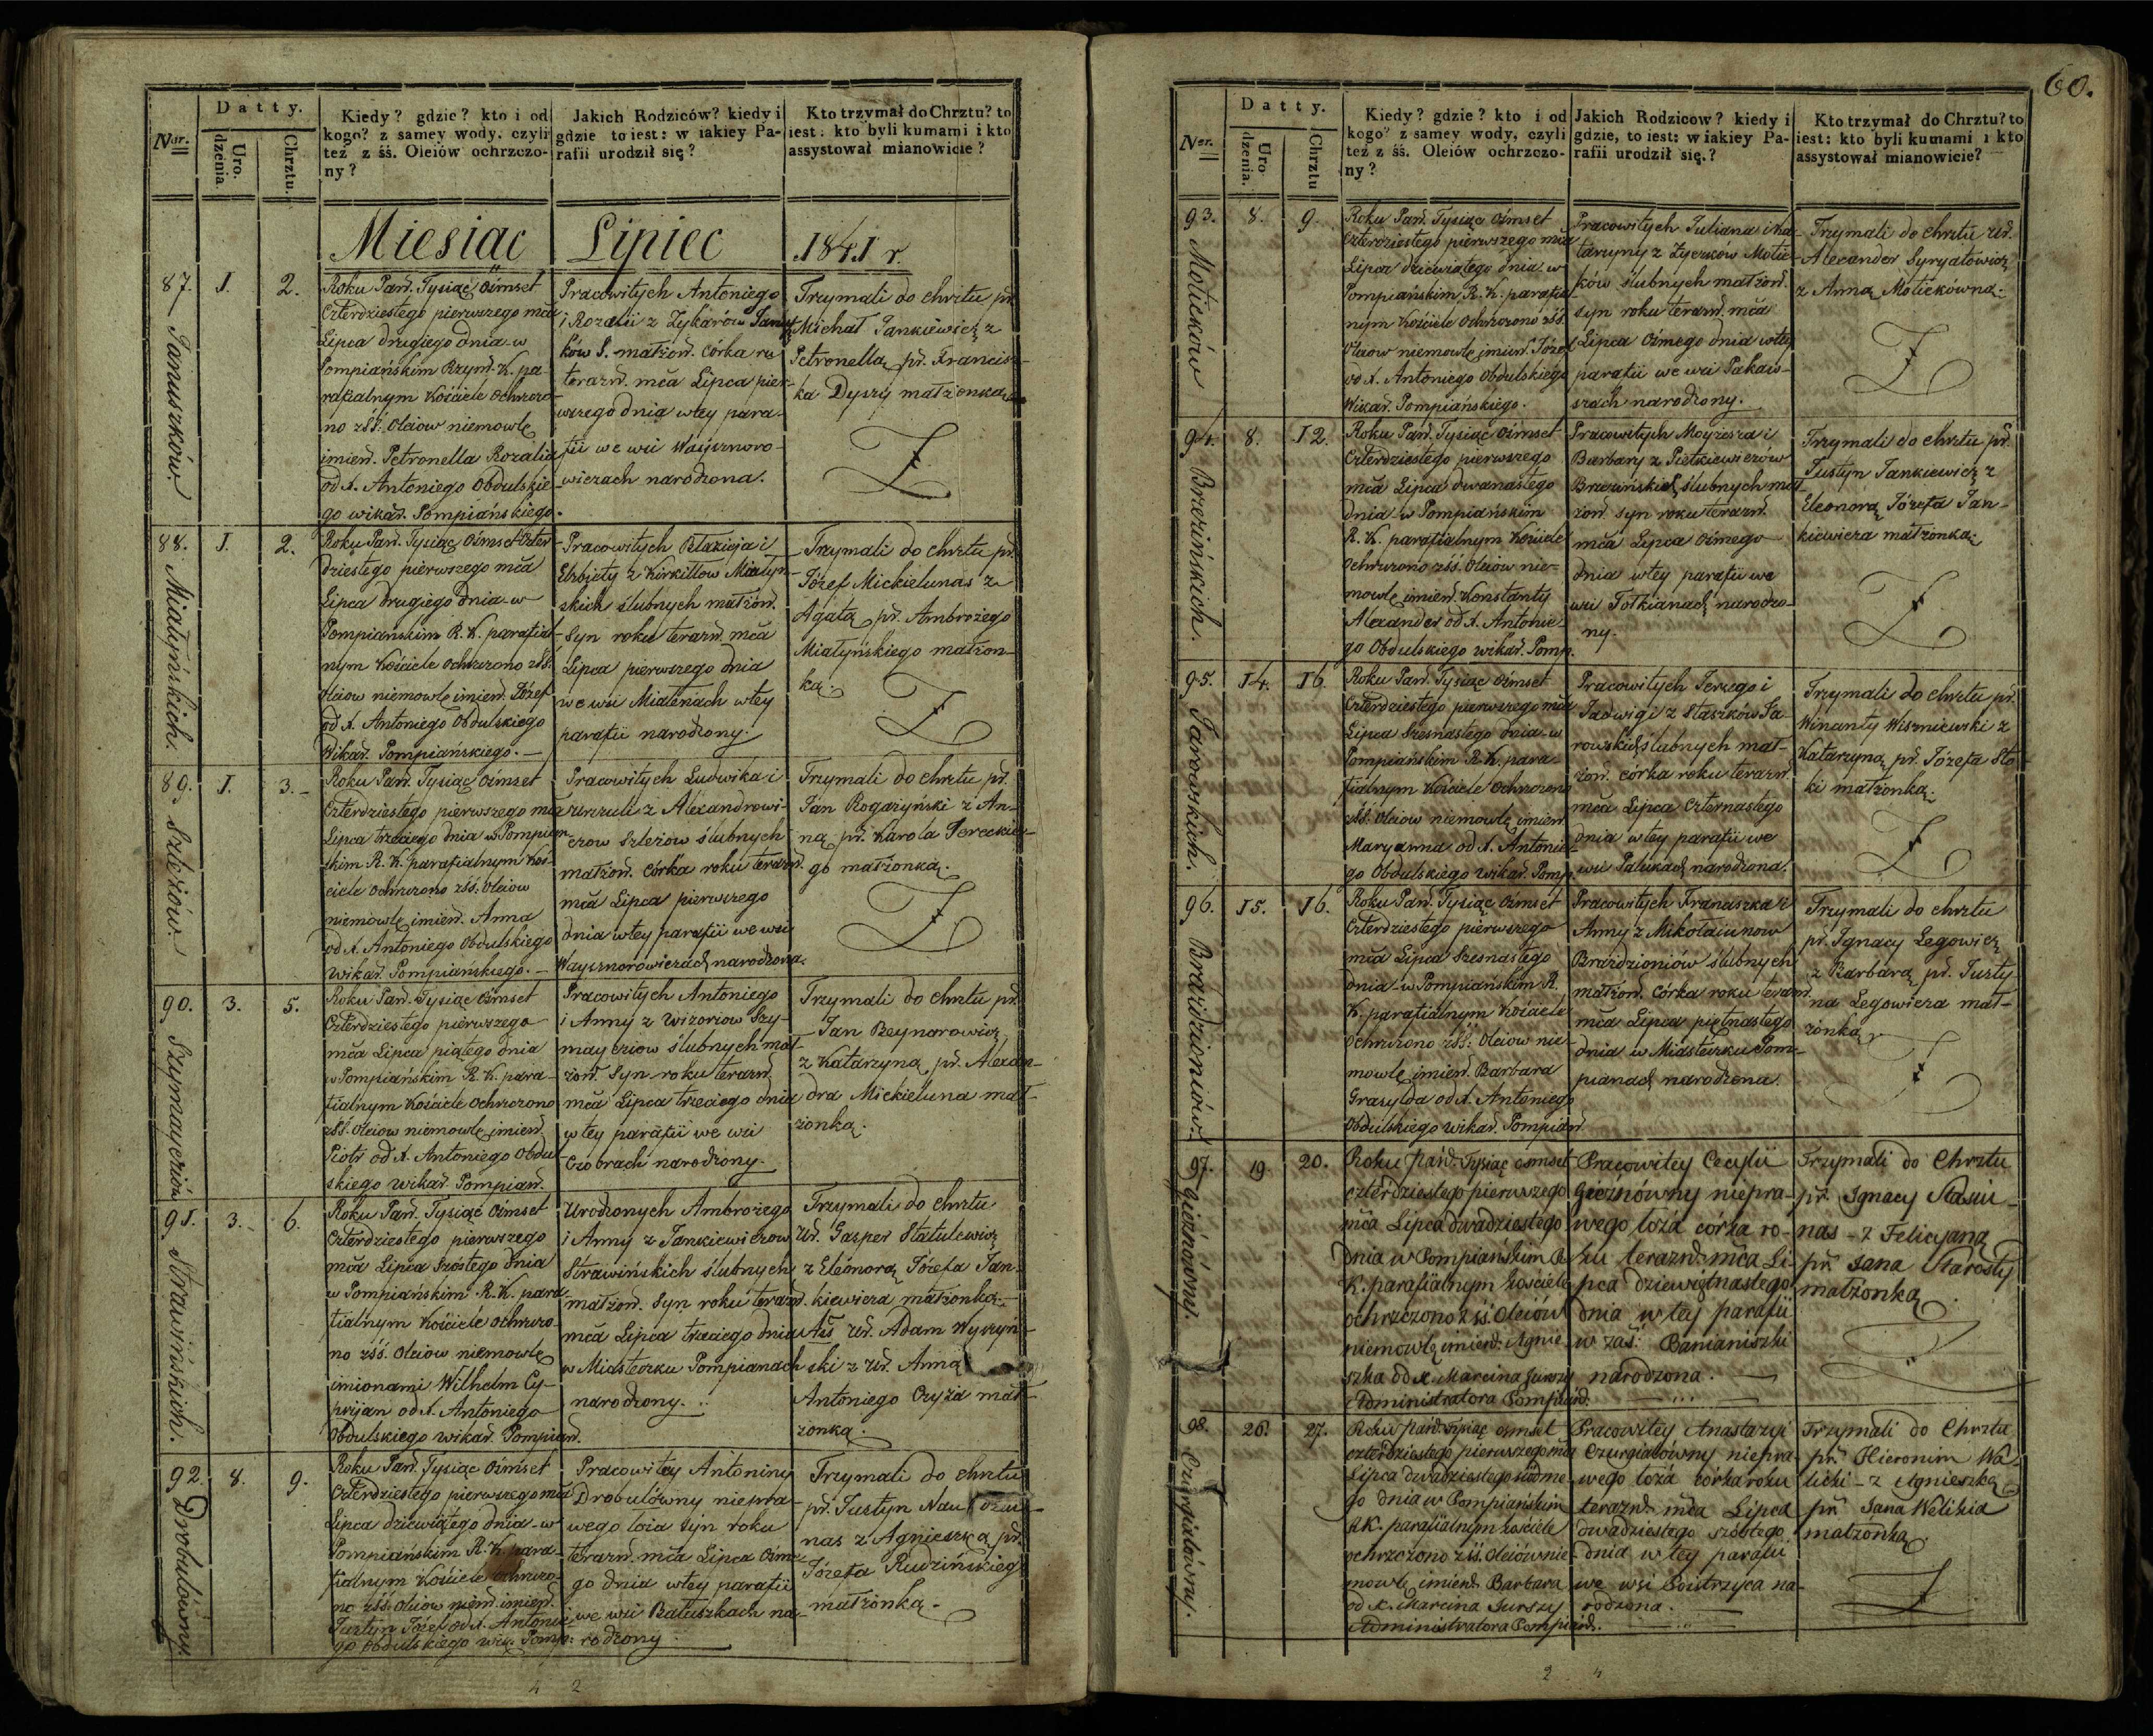 Nar.
Datty.
Uro.
dzenia.
Chrztu.
Kiedy? gdzie? kto i od
kogo? z samey wody, czyli
też z śś. Oleiów ochrzczo-
ny?
Jakich Rodziców? kiedy i
gdzie to iest: w iakiey Pa-
rafii urodził się?
Kto trzymał do Chrztu? to
iest: kto byli kumami i kto
assystował mianowicie?
Miesiąc Lipiec 1841 r.
87. Januszków.
1.
2.
Roku Pań. Tysiąc Ośmset
Czterdziestego pierwszego mca
Lipca drugiego dnia w
Pompiańskim Rzym. K. pa-
rafialnym Kościele Ochrzczo-
no z śś. Oleiow niemowlę
imien. Petronella Rozalia
od X. Antoniego Obdulskie-
go wikar. Pompiańskiego.
Pracowitych Antoniego
i Rozalii z Zykarów Janusz-
ków S. małżon. córka ro
terazn. mca Lipca pier-
wszego dnia w tey para-
fii we wsi Wayszworo-
wiczach narodzona.
Trzymali do chrztu pr.
Michał Jankiewicz z
Petronellą pr. Francisz-
ka Dyszy małżonką
88. Miałyńskich.
1.
2.
Roku Pań. Tysiąc Ośmset Czter
dziestego pierwszego mca
Lipca drugiego dnia w
Pompiańskim R. K. parafial-
nym Kościele Ochrzczono z śś.
Oleiow niemowlę imien. Józef
od X. Antoniego Obdulskiego
Wikar. Pompiańskiego.
Pracowitych Błażieja i
Elżbiety z Kirkiłłow Miałyń-
skich ślubnych małżon.
Syn roku terazn. mca
Lipca pierwszego dnia
we wsi Miałeniach w tey
parafii narodzony.
Trzymali do chrztu pr.
Józef Mickielunas z
Agatą pr. Ambrożego
Miałyńskiego małżon-
ką.
89. Szleżiów
1.
3.
Roku Pań. Tysiąc Ośmset
Czterdziestego pierwszego mca
Lipca trzeciego dnia w Pompian-
skim R. K. parafialnym Koś-
ciele Ochrzczono z śś. Oleiow
niemowlę imien. Anna
od X. Antoniego Obdulskiego
Wikar. Pompiańskiego.
Pracowitych Ludwika i
Urszuli z Alexandrowi-
czow Szleżow ślubnych
małżon. córka roku terazn.
mca Lipca pierwszego
dnia w tey parafii we wsi
Wayszworowiczach narodzona.
Trzymali do chrztu pr.
Jan Rogażyński z An-
ną pr. Karola Tereckie-
go małżonką.
90. Szymayciów
3.
5.
Roku Pań. Tysiąc Ośmset
Czterdziestego pierwszego
mca Lipca piątego dnia
w Pompiańskim R. K. para-
fialnym Kościele Ochrzczono
z śś. Oleiow niemowlę imien.
Piotr od X. Antoniego Obdul-
skiego wikar. Pompian.
Pracowitych Antoniego
i Anny z Wizoriow Szy-
maycziow ślubnych mał-
żon. Syn roku terazn.
mca Lipca trzeciego dnia
w tey parafii we wsi
Czobrach narodzony.
Trzymali do chrztu pr.
Jan Reynorowicz
z Katarzyną pr. Alexan-
dra Mickieluna mał-
żonką.
91. Strawińskich.
3.
6.
Roku Pań. Tysiąc Ośmset
Czterdziestego pierwszego
mca Lipca szóstego dnia
w Pompiańskim R. K. para-
fialnym Kościele ochrzczo-
no z śś. Oleiow niemowlę
imionami Wilhelm Cy-
pryjan od X. Antoniego
Obdulskiego wikar. Pompian.
Urodzonych Ambrożego
i Anny z Jankiewiczow
Strawińskich ślubnych
małżon. Syn roku terazn.
mca Lipca trzeciego dnia
w Miasteczku Pompianach
narodzony.
Trzymali do chrztu
Ur. Gasper Statulewicz
z Eleonorą Józefa Jan-
kiewicza małżonką.
Aś Ur. Adam Wyszyń-
ski z Ur. Anną
Antoniego Czyża mał-
żonką.
92. Drobulówny.
8.
9.
Roku Pań. Tysiąc Ośmset
Czterdziestego pierwszego mca
Lipca dziewiątego dnia w
Pompiańskim R. K. para-
fialnym Kościele ochrzczo-
no z śś. Oleiow niem. imien.
Justyn Józef od X. Antonie-
go Obdulskiego wik. Pomp.
Pracowitey Antoniny
Drobulówny niepra-
wego łoża syn roku
terazn. mca Lipca Ósme-
go dnia w tey parafii
we wsi Bałuszkach na-
rodzony.
Trzymali do chrztu
pr. Justyn
nas z Agnieszką pr.
Józefa Rudzińskiego
małżonką.
60.
Ner.
Datty.
Uro
dzenia.
Chrztu
Kiedy? gdzie? kto i od
kogo? z samey wody, czyli
też z śś. Oleiów ochrzczo-
ny?
Jakich Rodzicow? kiedy i
gdzie, to iest: w iakiey Pa-
rafii urodził się.?
Kto trzymał do Chrztu? to
iest: kto byli kumami i kto
assystował mianowicie?
93. Motieków
8.
9.
Roku Pań. Tysiąc Ośmset
Czterdziestego pierwszego mca
Lipca dziewiątego dnia w
Pompiańskim R. K. parafial-
nym Kościele Ochrzczono z śś.
Oleiow niemowlę imien. Józef
od X. Antoniego Obdulskiego
Wikar. Pompiańskiego.
Pracowitych Juliana i Ka-
tarzyny z Zyczków Motie-
ków ślubnych małżon.
syn roku terazn. mca
Lipca Ósmego dnia w tey
parafii we wsi Pakais-
szach narodzony.
Trzymali do chrztu Ur.
Alexander Syryatowicz
z Anną Motiekówną.
94. Brezińskich.
8.
12.
Roku Pań. Tysiąc Ośmset
Czterdziestego pierwszego
mca Lipca dwanastego
dnia w Pompiańskim
R. K. parafialnym Kościele
Ochrzczono z śś. Oleiow nie-
mowlę imien. Konstanty
Alexander od X. Antonie-
go Obdulskiego wikar. Pomp.
Pracowitych Moyżesza i
Barbary z Pietkiewiczów
Brezińskich ślubnych mał-
żon. syn roku terazn.
mca Lipca Ósmego
dnia w tey parafii we
wsi Tołkianach narodzo-
ny.
Trzymali do chrztu pr.
Justyn Jankiewicz z
Eleonorą Józefa Jan-
kiewicza małżonką.
95. Jarowskich.
14.
16.
Roku Pań. Tysiąc Ośmset
Czterdziestego pierwszego mca
Lipca szesnastego dnia w
Pompiańskim R. K. para-
fialnym Kościele Ochrzczono
z śś. Oleiow niemowlę imien.
Maryanna od X. Antonie-
go Obdulskiego wikar. Pomp.
Pracowitych Jerzego i
Jadwigi z Staszków Ja-
rowskich ślubnych mał-
żon. córka roku terazn.
mca Lipca czternastego
dnia w tey parafii we
wsi Palukach narodzona.
Trzymali do chrztu pr.
Winanty Wiszniewski z
Katarzyną pr. Józefa Sto-
ki małżonką.
96. Braździoniów.
15.
16.
Roku Pań. Tysiąc Ośmset
Czterdziestego pierwszego
mca Lipca szesnastego
dnia w Pompiańskim R.
K. parafialnym Kościele
Ochrzczono z śś. Oleiow nie-
mowlę imien. Barbara
Grasylda od X. Antoniego
Obdulskiego wikar. Pompian.
Pracowitych Franciszka i
Anny z Mikołaiunow
Braździoniów ślubnych
małżon. córka roku terazn.
mca Lipca piętnastego
dnia w Miasteczku Pom-
pianach narodzona.
Trzymali do chrztu
pr. Ignacy Legowicz
z Barbarą pr. Justy-
na Legowicza mał-
żonką
97. Giećnówny.
19.
20.
Roku Pań. Tysiąc ośmset
czterdziestego pierwszego
mca Lipca dwadziestego
dnia w Pompiańskim R.
K. parafialnym kościele
ochrzczono z śś. Oleiów
niemowlę imien. Agnie-
szka od X. Marcina Jurszy
Administratora Pompian.
Pracowitey Cecylii
Giećnówny niepra-
wego łoża córka ro-
ku terazn. mca Li-
pca dziewiętnastego
dnia w tey parafii
w zaś. Banianiszki
narodzona.
Trzymali do Chrztu
pr. Ignacy Stasiu-
nas z Felicyaną
pr. Jana Starosty
małżonką
98. Czurgialówny.
26.
27.
Roku Pań. Tysiąc ośmset
czterdziestego pierwszego mca
Lipca dwadziestego siódme-
go dnia w Pompiańskim
R. K. parafialnym kościele
ochrzczono z śś. Oleiów nie-
mowlę imien. Barbara
od X. Marcina Jurszy
Administratora Pompian.
Pracowitey Anastazyi
Czurgialówny niepra-
wego łoża córka roku
terazn. mca Lipca
dwadziestego szóstego
dnia w tey parafii
we wsi Poistrzyca na-
rodzona.
Trzymali do Chrztu
pr. Hieronim Wa-
licki z Agnieszką
pr. Jana Welikia
małżonką